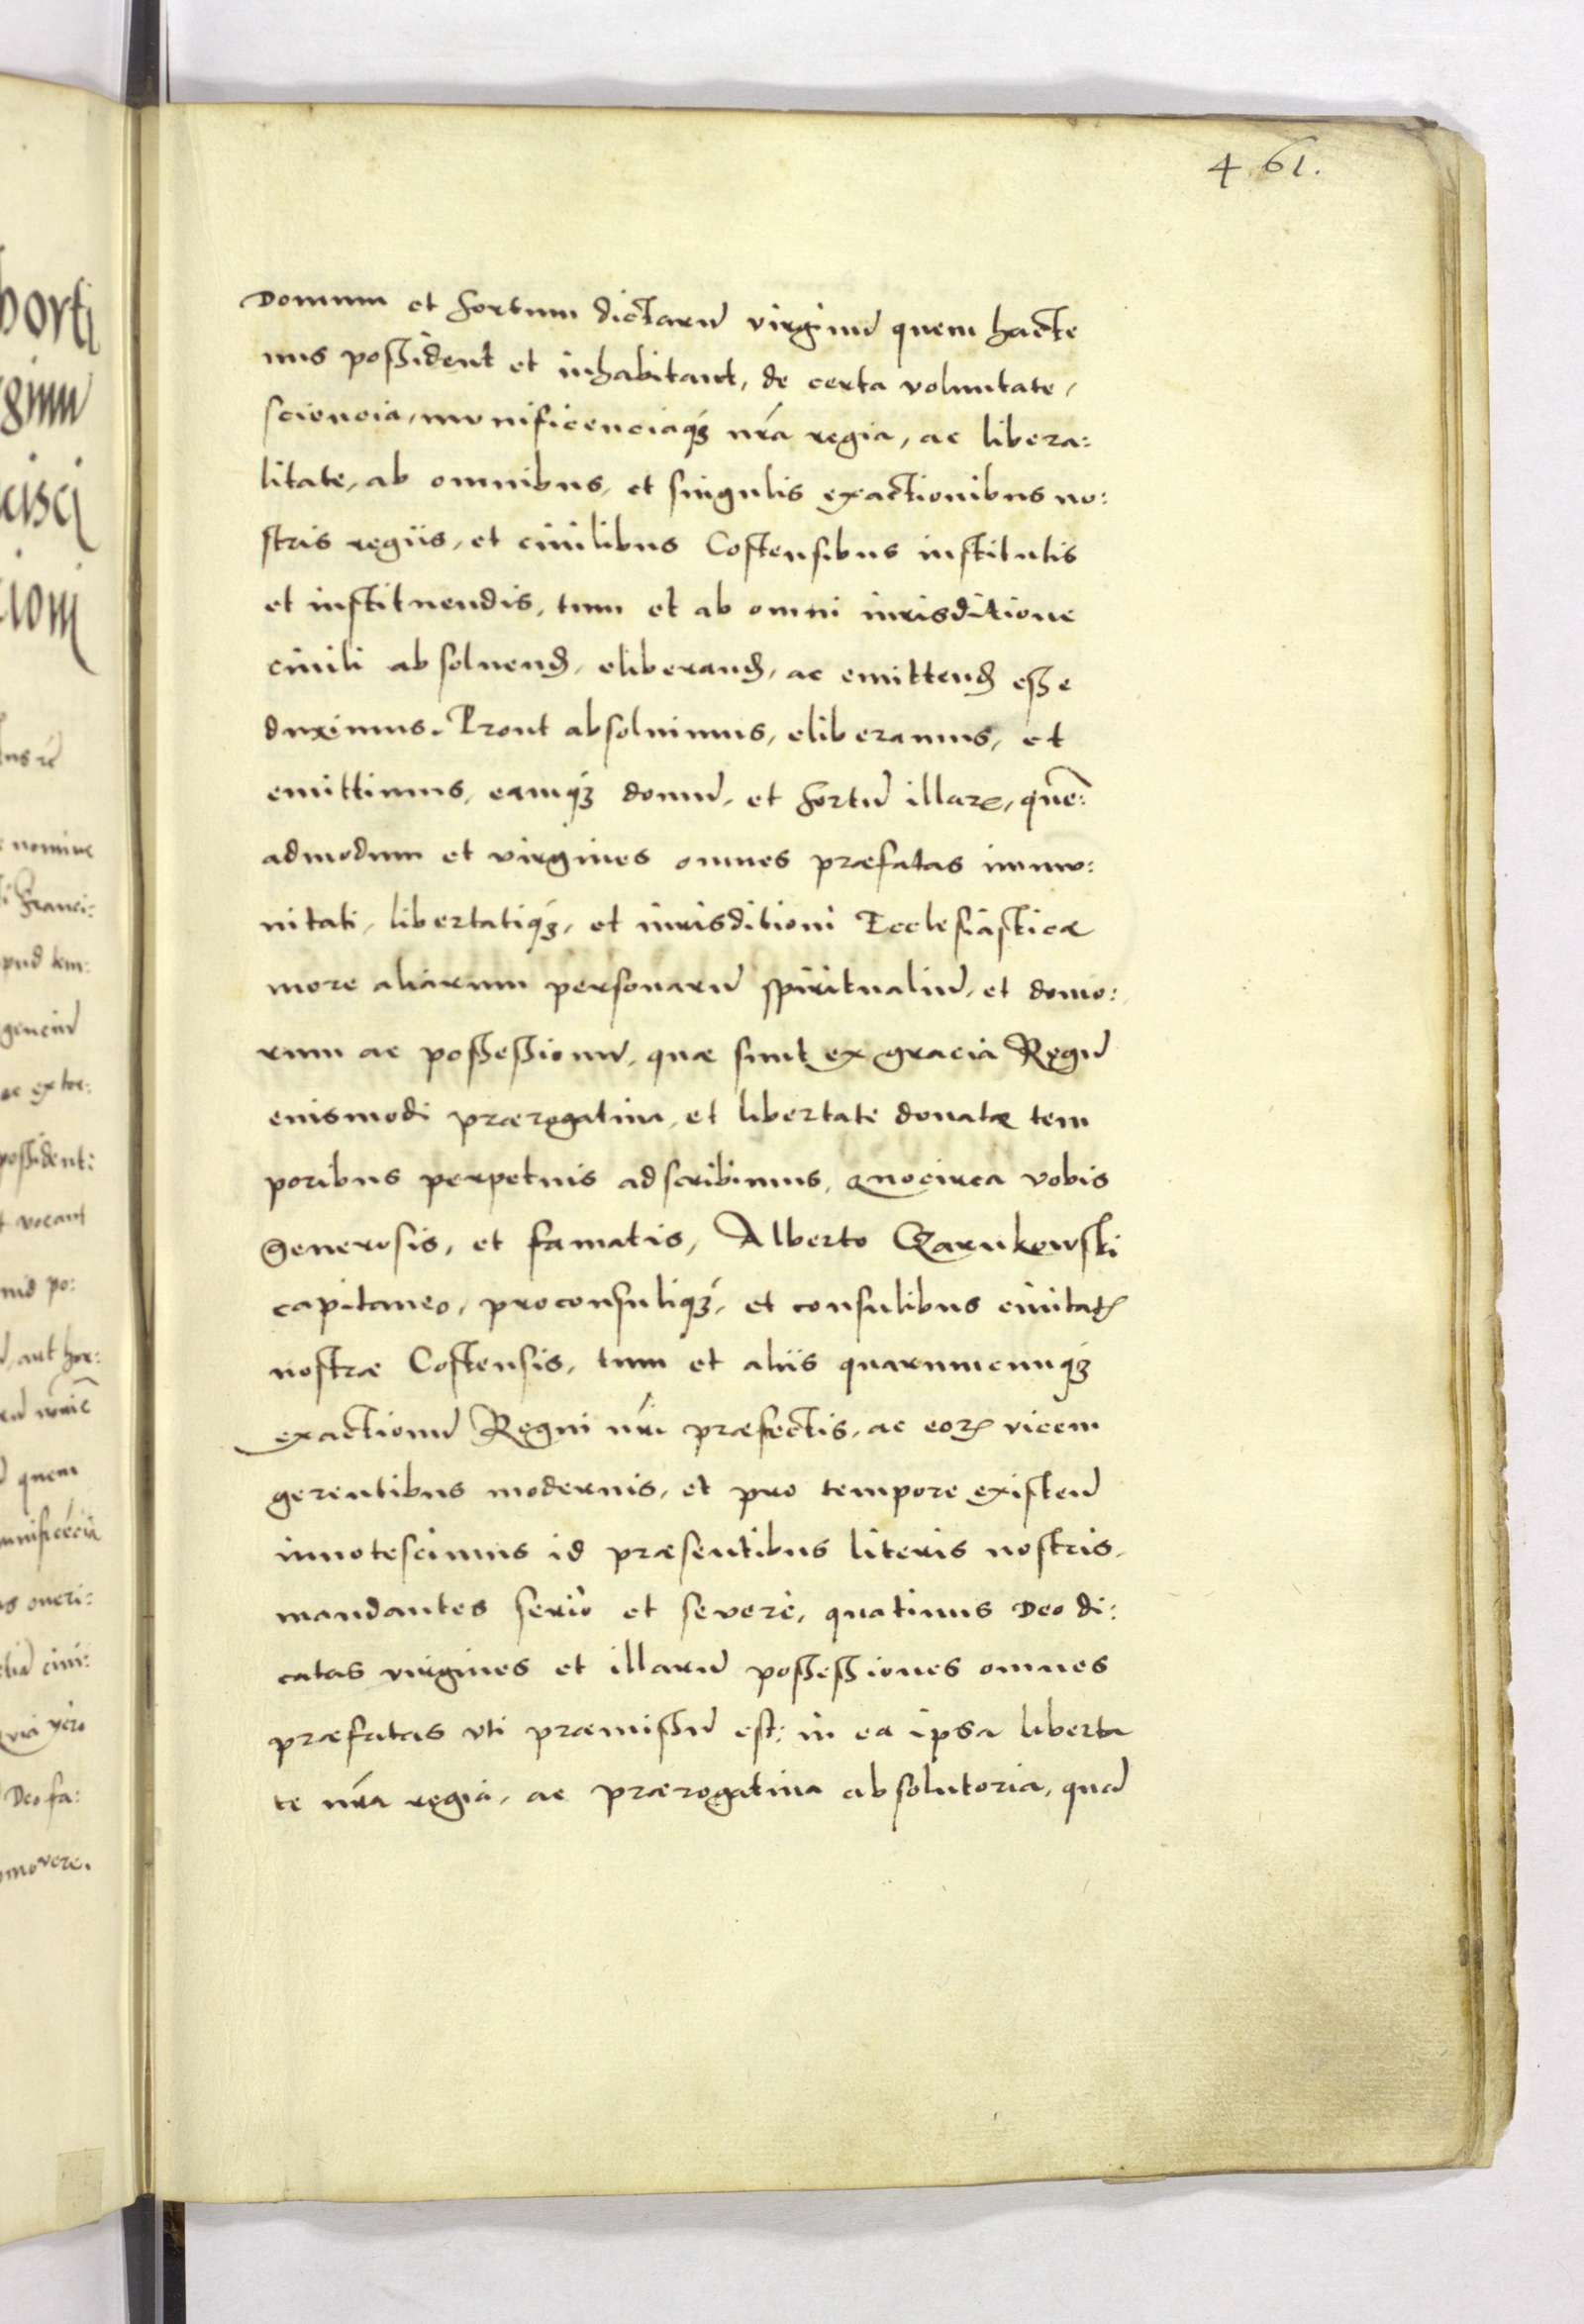 461.
Domum et hortum dictarū virginū quem hacte
nus possident et inhabitant, de certa voluntate,
sciencia, munificenciaqꝫ nrá regia, ac libera:
litate, ab omnibus, et singulis exactionibus no:
stris regiis, et ciuilibus Costensibus institutis
et instituendis, tum et ab omni iurisditione
ciuili absoluend, eliberand, ac emittend esse
duximus. Prout absoluimus, eliberamus, et
emittimus, eamqꝫ domū, et hortū illarꝝ, quē:
admodum et virgines omnes præfatas immu:
nitati, libertatiqꝫ, et iurisditioni Ecclesiasticæ
more aliarum personarū spiritualiū, et domo:
rum ac possessionū, quæ sunt ex gracia Regū
eiusmodi prærogatiua, et libertate donatæ tem
poribus perpetuis adscribimus, Quocirca vobis
Generosis, et famatis, Alberto Czarnkowski
capitaneo, proconsuliqꝫ, et consulibus ciuitatꝭ
nostræ Costensis, tum et aliis quarumcunqꝫ
exactionū Regni nri præfectis, ac eorꝝ vicem
gerentibus modernis, et pro tempore existen
innotescimus id præsentibus literis nostris,
mandantes serio et severe, quatinus Deo di:
catas virgines et illarū possessiones omnes
præfatas vti præmissū est: in ea ipsa liberta
te nrá regia, ac prærogatiua absolutoria, quā